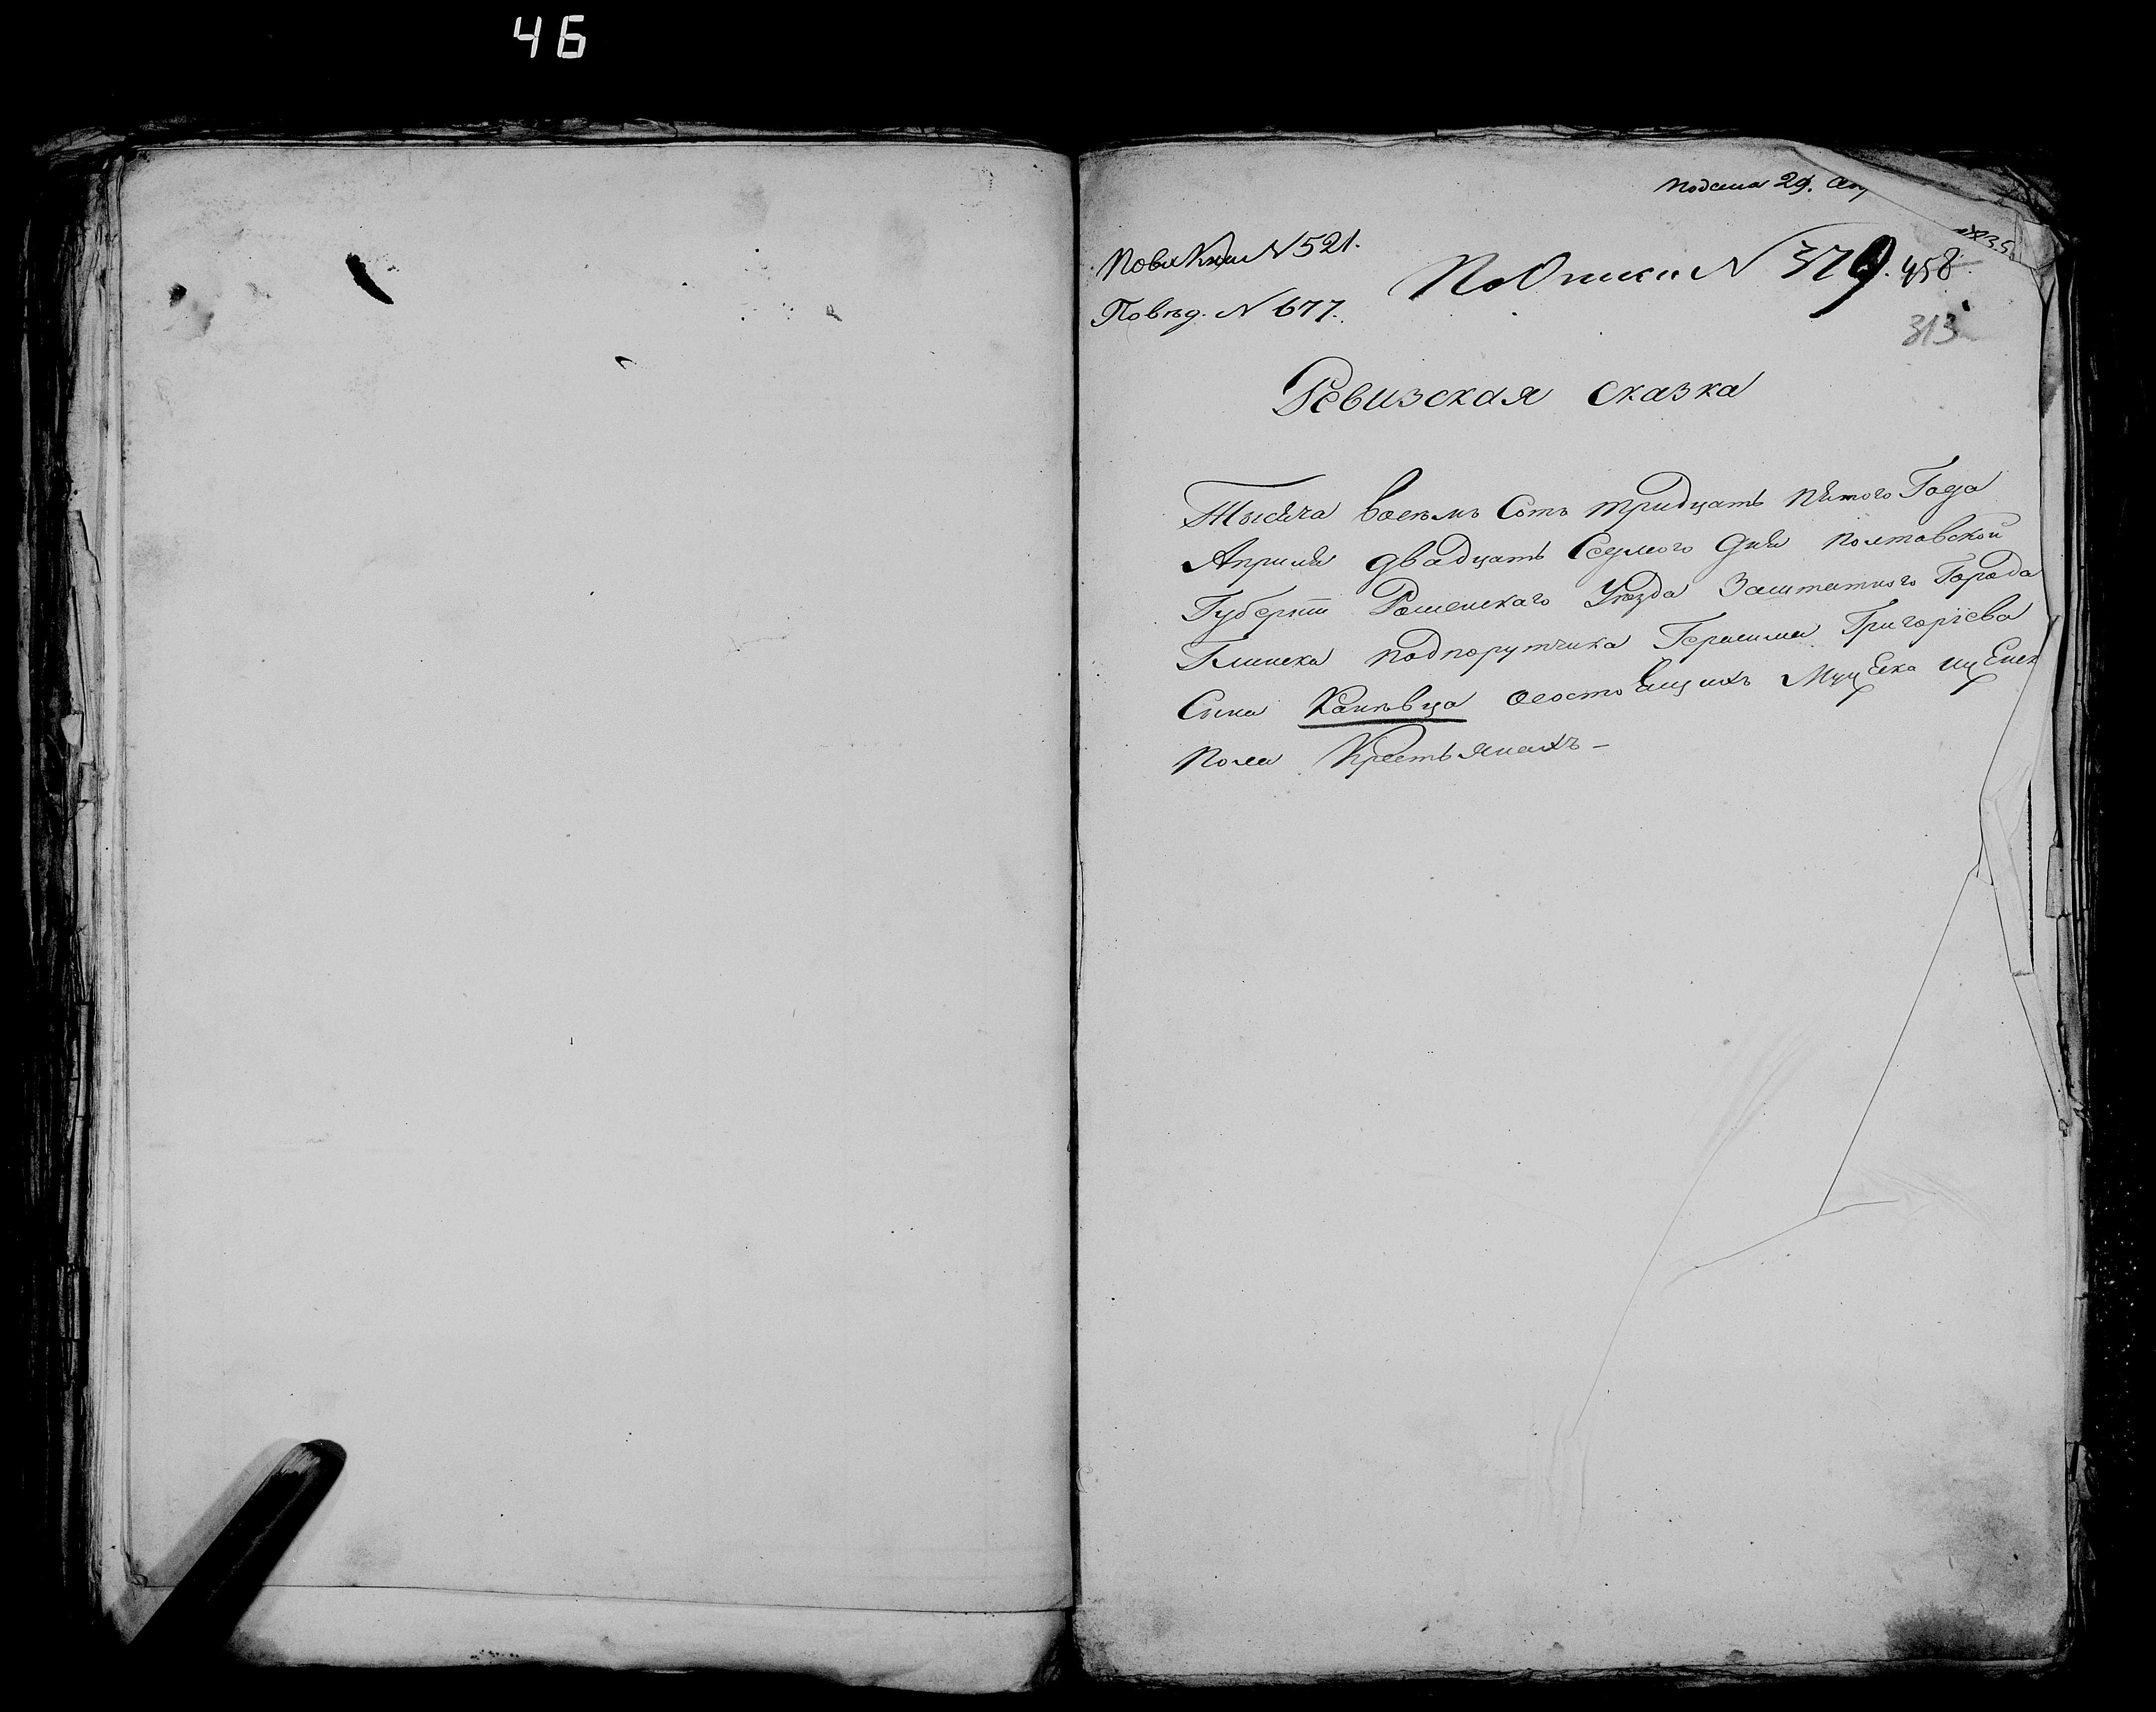 46
подана 29. Ап
1835
По вх Книг N 521.
По Описи N 379. 458.
По вѣд. N 677.
313
Ревизская сказка
Тысяча восемь Сотъ тридцать пятого Года
Апреля двадцать Седмого дня полтавской
Губерніи Роменскаго Уезда Заштатного Города
Глинска подпорутчика Герасима Григоріева
Сына Канѣвца осостоящихъ Муж Еска иж Енск
Пола Крестьянахъ –